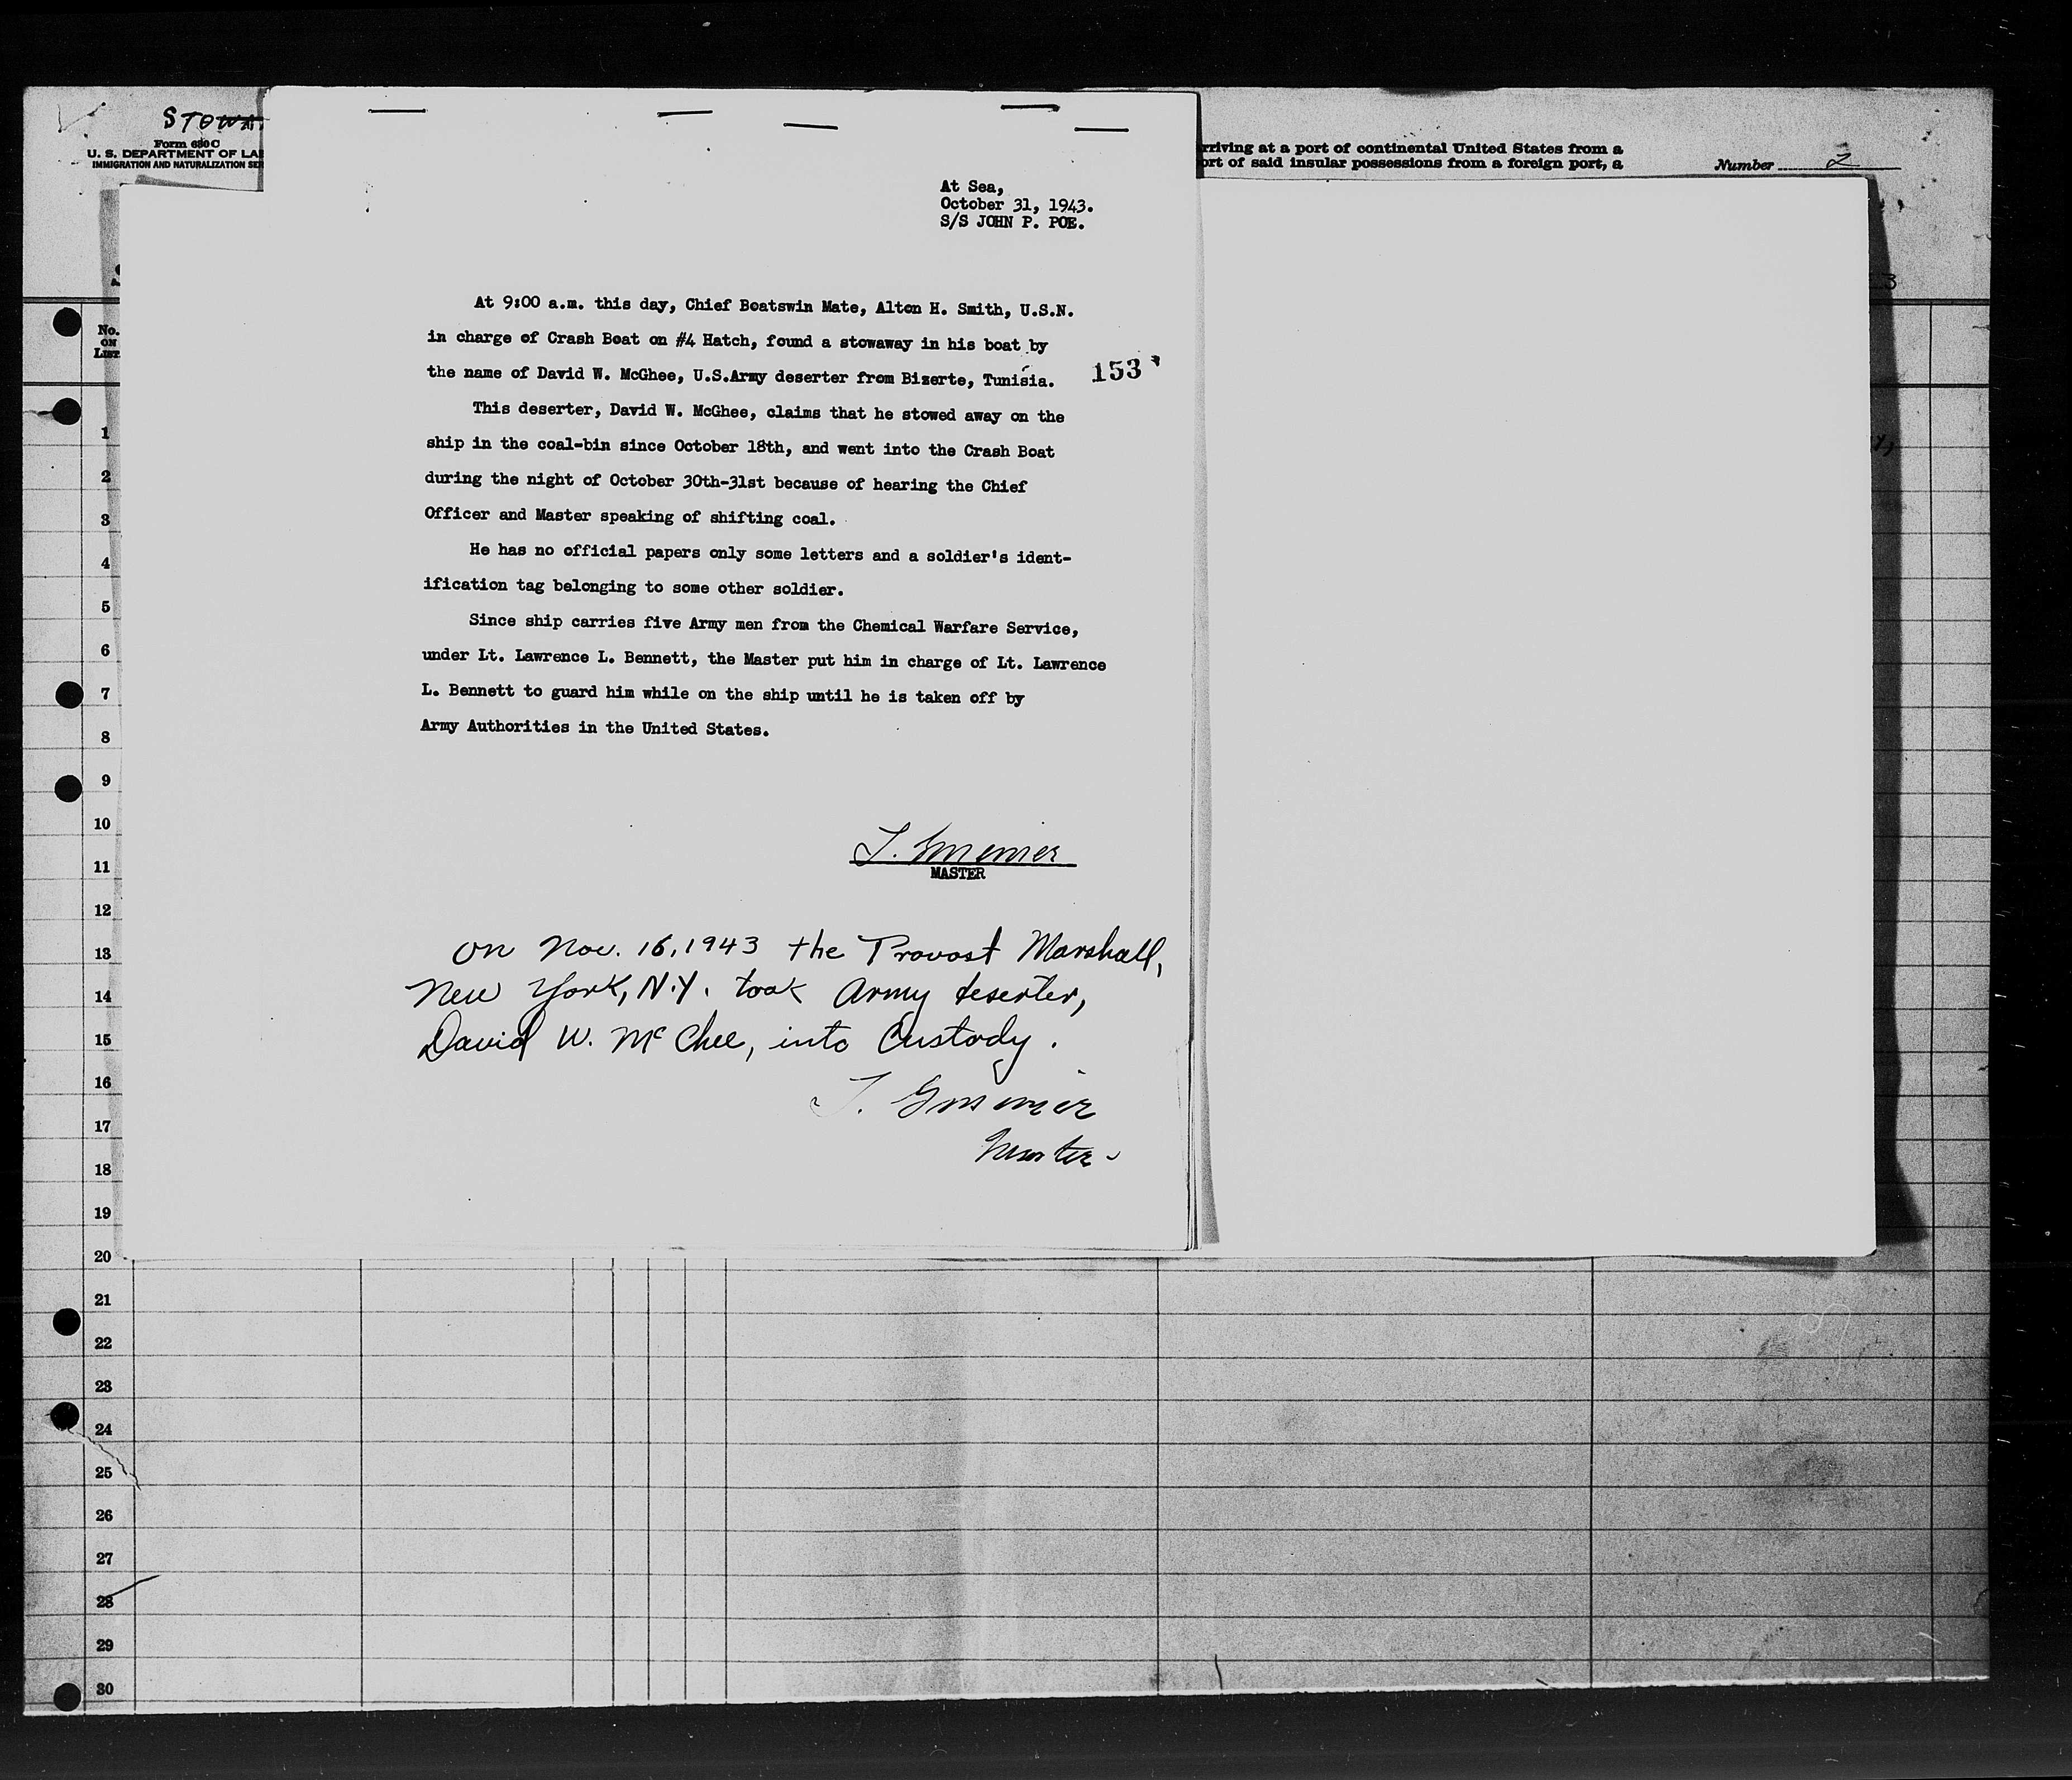 STOWA
Form 630 C
U. S. DEPARTMENT OF LA
IMMIGRATION AND NATURALIZATION SER
rriving at a port of continental United States from a
ort of said insular possessions from a foreign port, a
Number 2
At Sea,
October 31, 1943.
S/S JOHN P. POE.
3
No.
ON
LIST
At 9:00 a.m. this day, Chief Boatswin Mate, Alton H. Smith, U.S.N.
in charge of Crash Boat on #4 Hatch, found a stowaway in his boat by
the name of David W. McGhee, U.S.Army deserter from Bizerte, Tunisia.
153
This deserter, David W. McGhee, claims that he stowed away on the
ship in the coal-bin since October 18th, and went into the Crash Boat
during the night of October 30th-31st because of hearing the Chief
Officer and Master speaking of shifting coal.
He has no official papers only some letters and a soldier's ident-
ification tag belonging to some other soldier.
Since ship carries five Army men from the Chemical Warfare Service,
under Lt. Lawrence L. Bennett, the Master put him in charge of Lt. Lawrence
L. Bennett to guard him while on the ship until he is taken off by
Army Authorities in the United States.
MASTER
On Nov. 16, 1943 the Provost Marshall,
New York, N.Y. took Army deserter,
David W. McGhee, into Custody.
Master
1
2
3
4
5
6
7
8
9
10
11
12
13
14
15
16
17
18
19
20
21
22
23
24
25
26
27
28
29
30